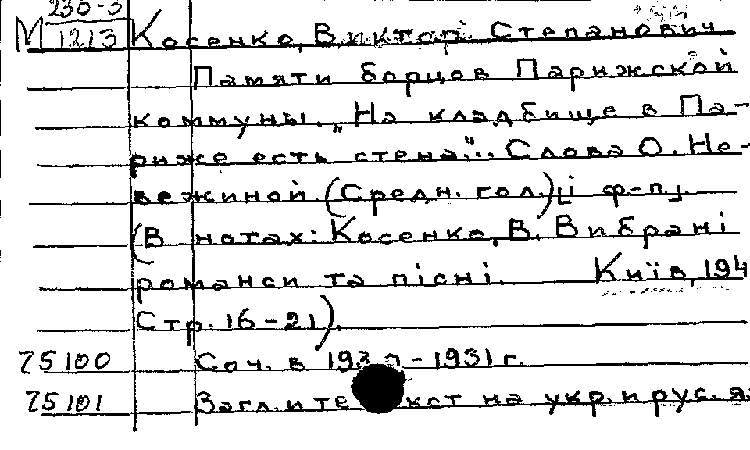 230-3
М 1213 Косенко, Виктор Степанович
Памяти борцов Парижской
коммуны. „На кладбище в Па-
риже есть стена“... Слова О. Не-
вежиной. (Средн. гол.) ф-п.
(В нотах: Косенко, В. Вибрані
романси та пісні. Київ, 194
Стр. 16-21).
75100 Соч. в 1931 г.
75101 Загл. и на укр. и рус. яз